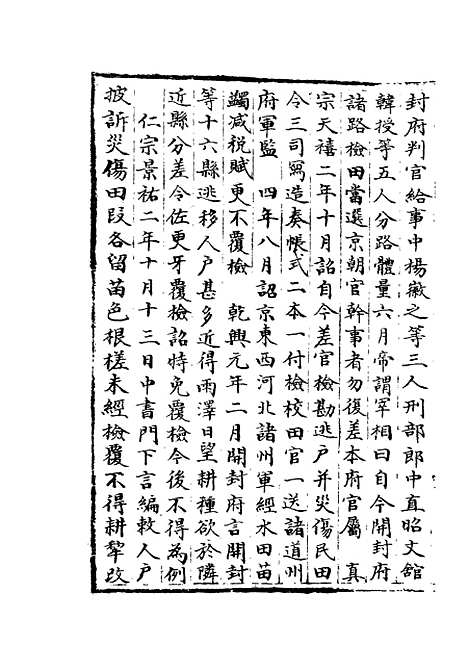 封府判官給事中楊徽之等三人刑部郎中直昭文館
韓授等五人分路體量六月帝謂宰相曰自今開封府
諸路檢田當選京朝官幹事者勿復差本府官屬　真
宗天禧二年十月詔自今差官檢勘逃戶并災傷民田
令三司寫造奏帳式二本一付檢校田官一送諸道州
府軍監　四年八月詔京東西河北諸州軍經水田苗
蠲減稅賦更不覆檢　乾興元年二月開封府言開封
等十六縣逃移人戶甚多近得雨澤日望耕種欲於隣
近縣分差令佐更牙覆檢詔特免覆檢今後不得為例
仁宗景祐二年十月十三日中書門下言編敕人戶
披訴災傷田段各留苗色根槎未經檢覆不得耕犂改